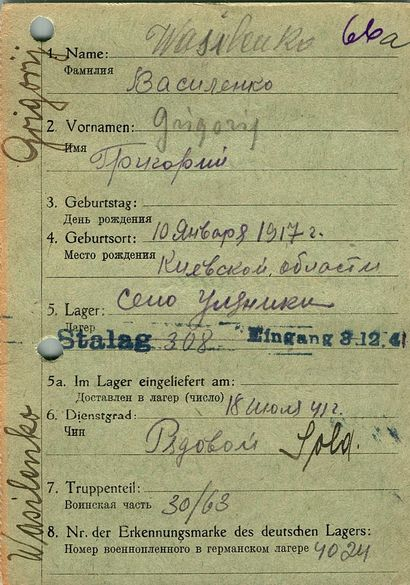 66a
1. Name: Wasilenko
Фамилия
Василенко
2. Vornamen: Grigorij
Имя
Григорий
3. Geburtstag:
День рождения
4. Geburtsort: 10 Января 1917 г.
Место рождения
Киевской, области
5. Lager: село Улзники
Лагер
Stalag 308 Eingang 3.12.41
5a. Im Lager eingeliefert am:
Доставлен в лагер (число) 18 июля 41г.
6. Dienstgrad:
Чин
Рядовой Sold.
7. Truppenteil:
Воинская часть 30/63
8. Nr. der Erkennungsmarke des deutschen Lagers:
Номер военнопленного в германском лагере 4024
Wasilenko Grigorij